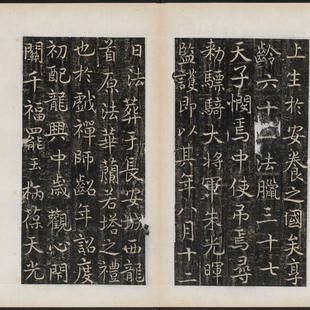 上生於安養之國矣享
齡六十二法臘三十七
天子憫焉中使吊焉尋
勅驃騎大將軍朱光暉
監護即以其年八月十二
日法葬于長安城西龍
首原法華蘭若塔之禮
也於戲禪師齠年詔度
初配龍興中歲觀心閇
關千福罷王柄葆天光